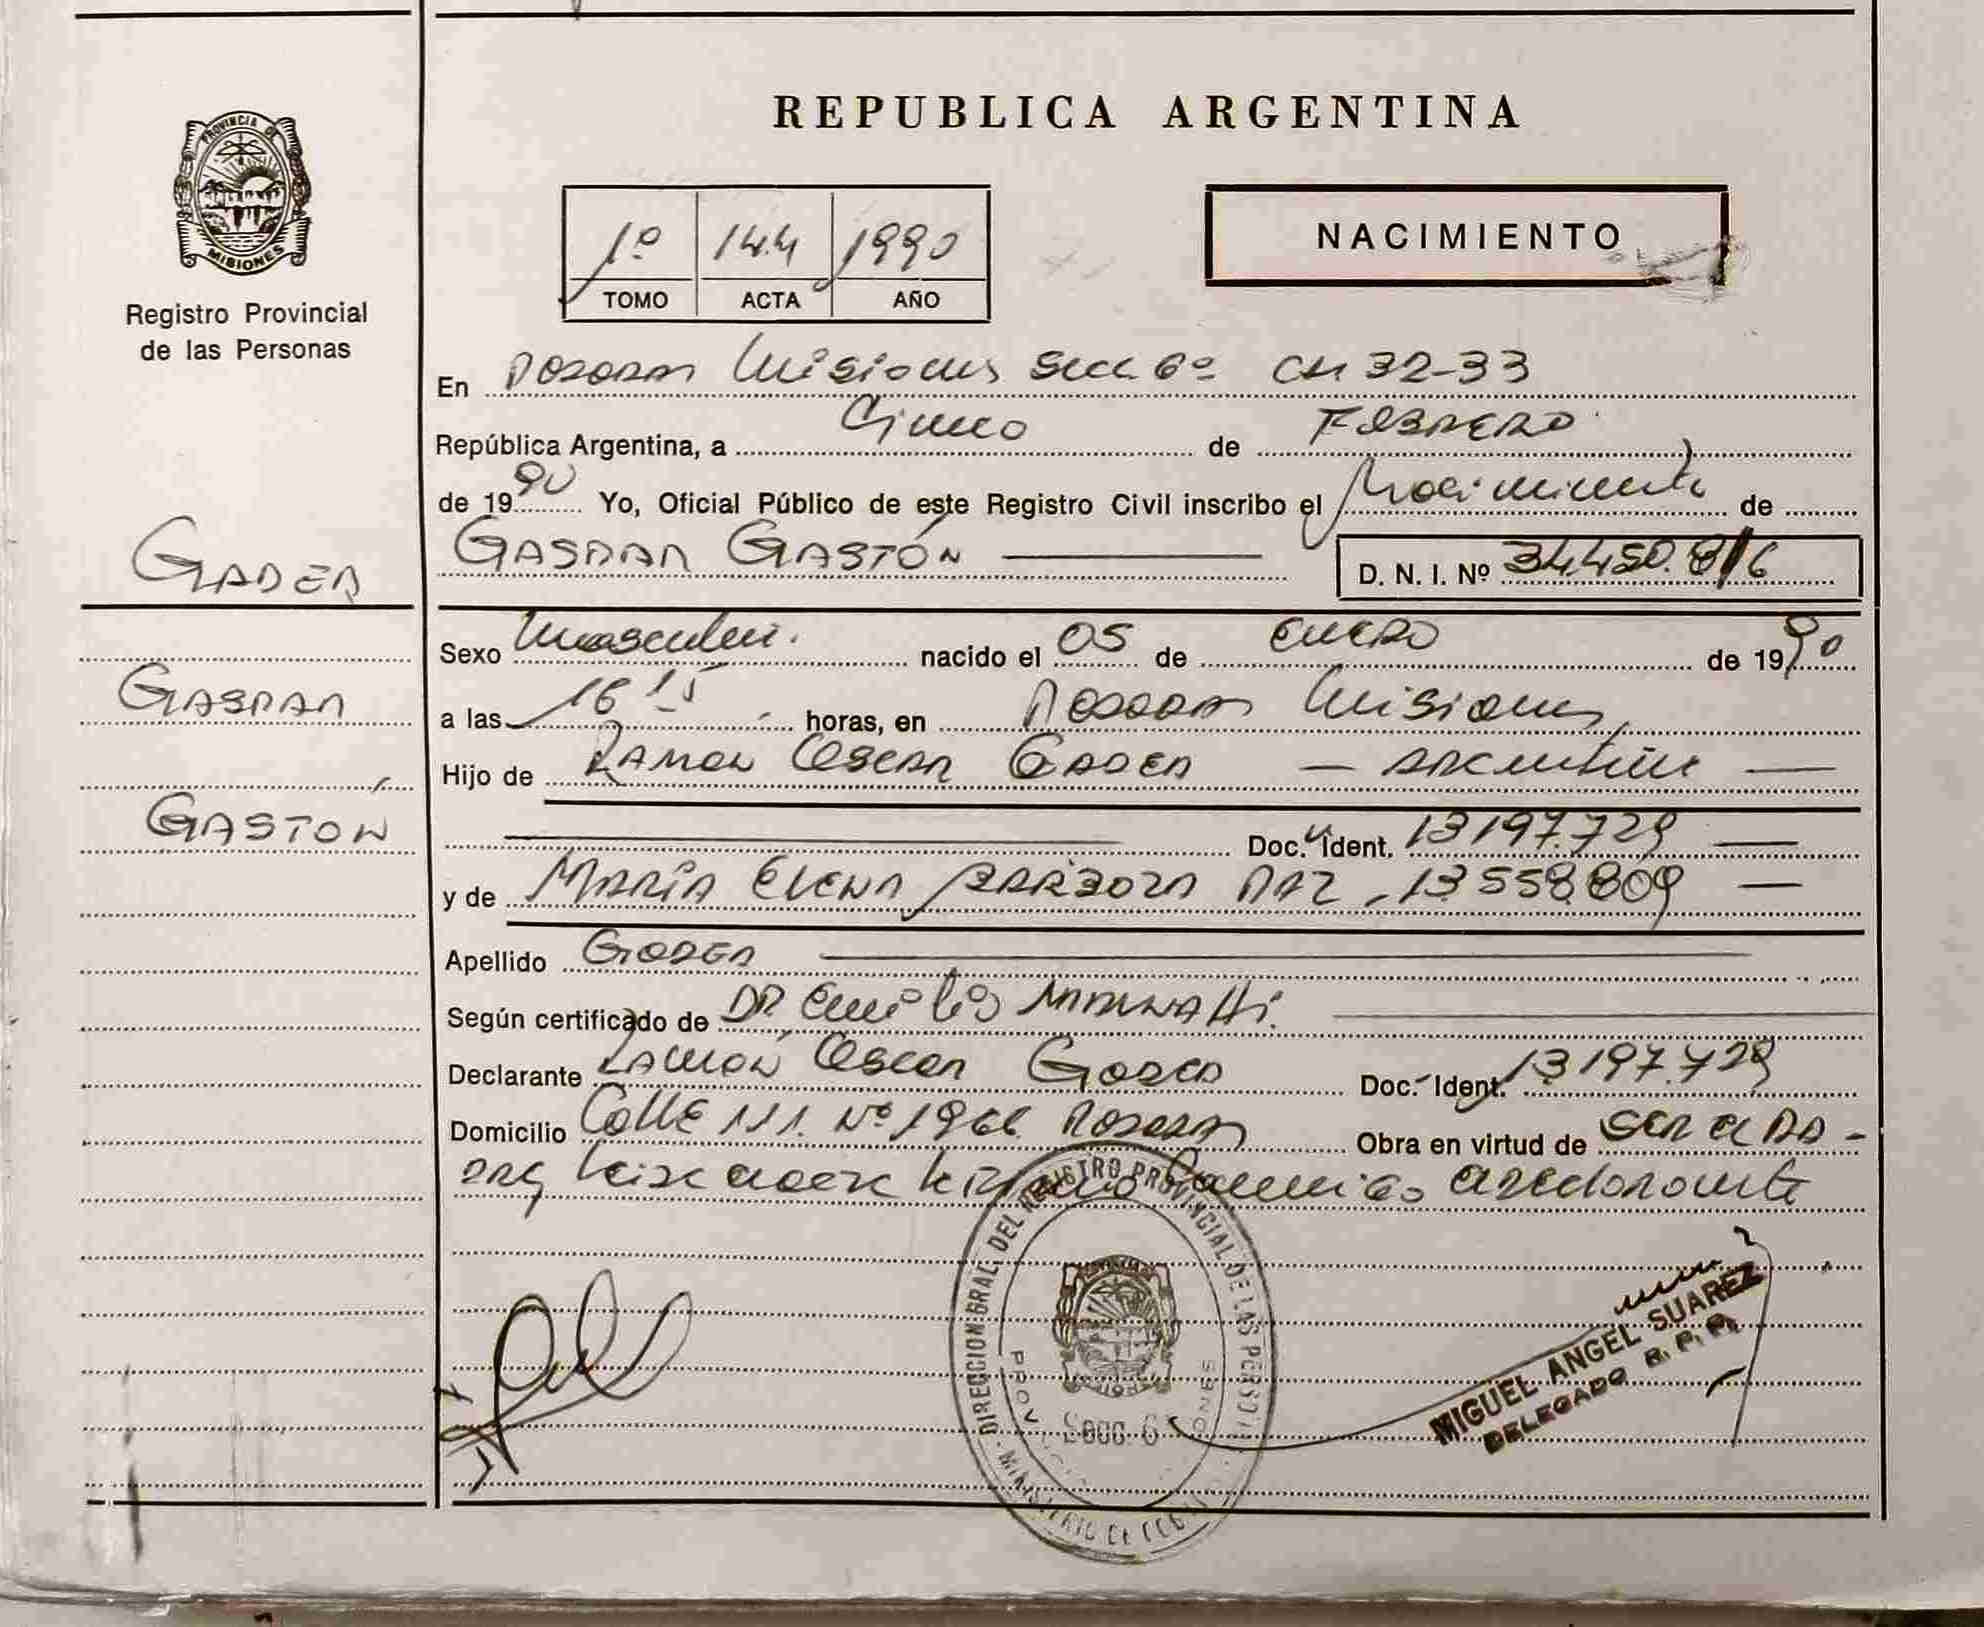 REPUBLICA ARGENTINA
PROVINCIA DE
MISIONES
Registro Provincial
de las Personas
1º 144 1990
TOMO ACTA AÑO
NACIMIENTO
En Posadas Misiones Secc 6º CH 32-33
República Argentina, a Cinco de FEBRERO
de 1990 Yo, Oficial Público de este Registro Civil inscribo el Nacimiento de
GASPAR GASTÓN D. N. I. Nº 34.450.816
GADEA
GASPAR
GASTÓN
Sexo Masculino. nacido el 05 de ENERO de 1990
a las 16 15 horas, en Posadas Misiones
Hijo de RAMON OSCAR GADEA — ARGENTINO —
Doc. Ident. 13197.729 —
y de MARÍA ELENA BARBOZA DNI. 13.558.809 —
Apellido GADEA
Según certificado de DR Emilio
Declarante RAMÓN OSCAR GADEA Doc. Ident. 13.197.729
Domicilio CALLE 111. Nº 1966 POSADAS Obra en virtud de SER EL PA-
DRE
DIRECCION GRAL. DEL REGISTRO PROVINCIAL DE LAS PERSONAS
MIGUEL ANGEL SUAREZ
DELEGADO R. P. P.